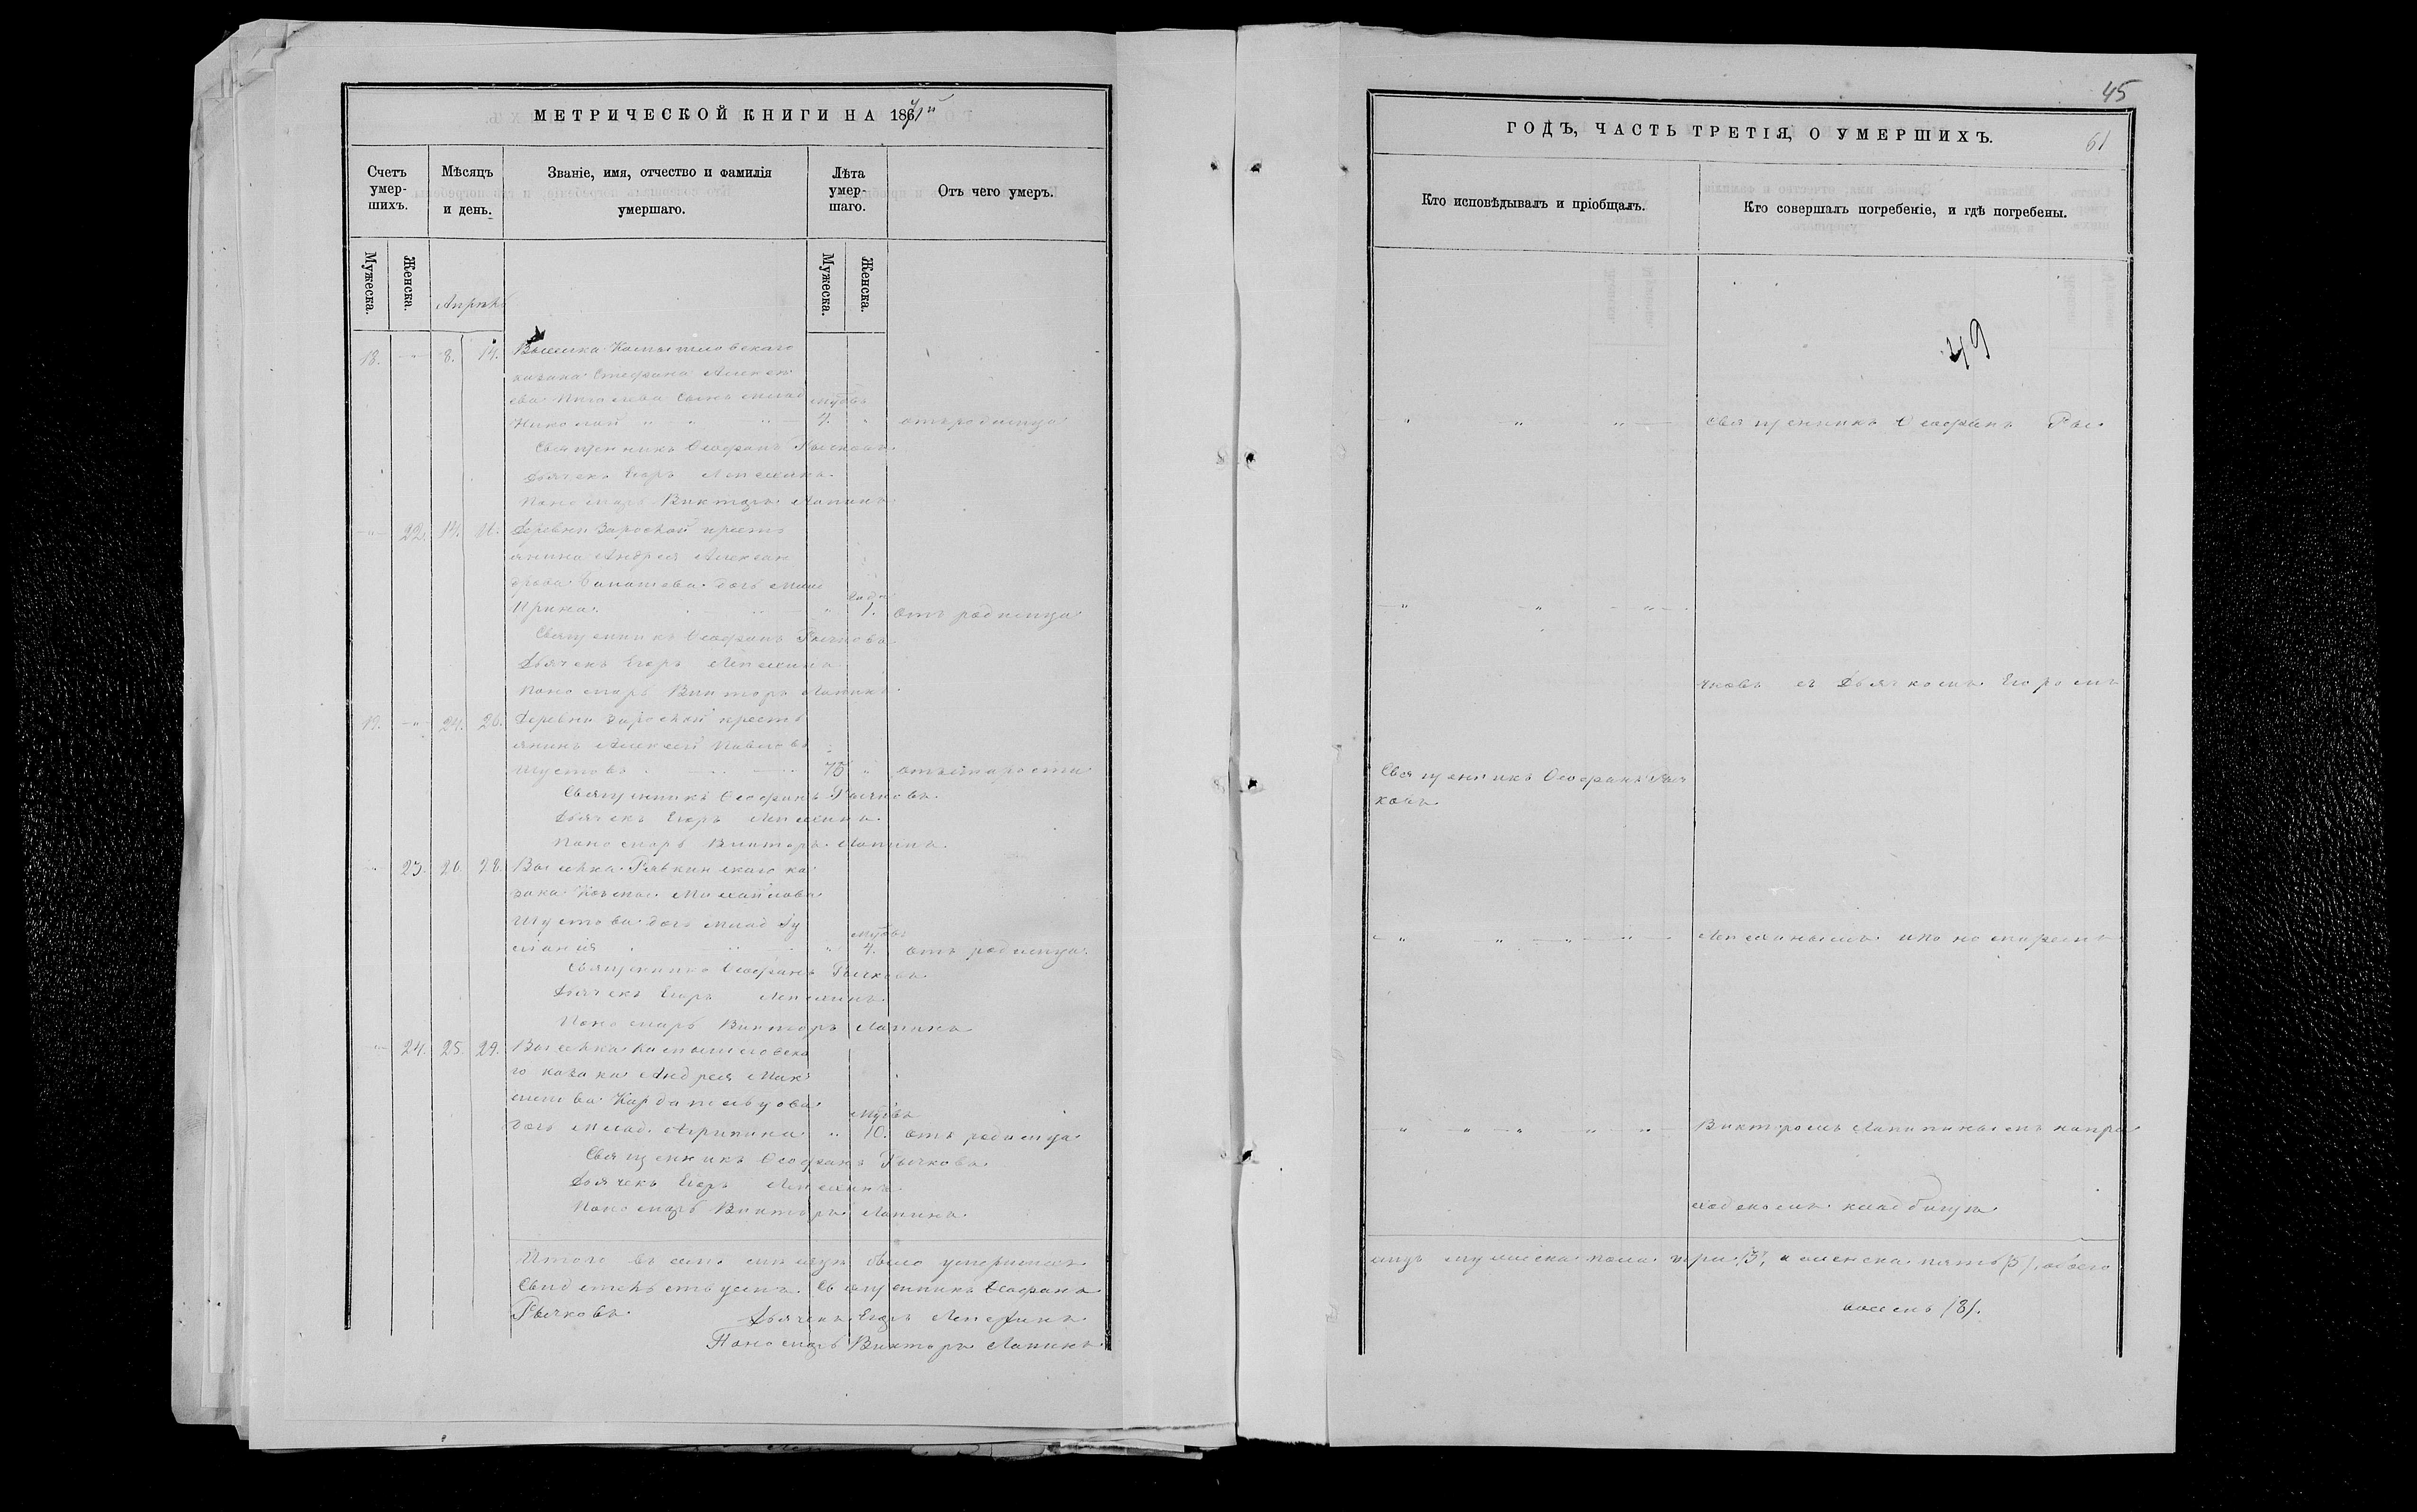 МЕТРИЧЕСКОЙ КНИГИ НА 1871й
Счетъ умер-шихъ.
Мѣсяцъ и день.
Званіе, имя, отчество и фамилія умершаго.
Лѣта умер-шаго.
Отъ чего умеръ.
Мужеска.
Женска.
Мужеска.
Женска.
Апрѣль
18. " 8. 14. Выселка
казака Стефана Алексѣ
ева сынъ млад
Николай " " "
Священникъ Ѳеофанъ Рычковъ.
Дьячекъ Егоръ Лепехинъ.
Пономарь Викторъ Лапинъ.
" 22. 14. Деревни крестъ
янина Андрея Алексан
дрова дочь
Ирина. " 1. отъ родимца
Священникъ Ѳеофанъ Рычковъ
Дьячекъ Егоръ Лепехинъ
Пономарь Викторъ Лапинъ.
19. " 24. 26. Деревни крестъ
янинъ Алексѣй Павловъ
Шустовъ 75 " отъ старости
Священникъ Ѳеофанъ Рычковъ.
Дьячекъ Егоръ Лепехинъ.
Пономарь Викторъ Лапинъ.
" 23. 26. 28. Выселка ка
зака Козьмы Михайлова
Шустова дочь млад
" 4. отъ родимца.
Священникъ Ѳеофанъ Рычковъ.
Дьячекъ Егоръ Лепехинъ.
Пономарь Викторъ Лапинъ
" 24. 25. 29. Выселка
го казака Андрея Мак
дочь млад. Агрипина " 10. отъ родимца
Священникъ Ѳеофанъ Рычковъ.
Дьячекъ Егоръ Лепехинъ.
Пономарь Викторъ Лапинъ.
Итого въ семъ мѣсяцѣ было умершихъ
Свидѣтельствуемъ. Священникъ Ѳеофанъ
Рычковъ. Дьячекъ Егоръ Лепехинъ
Пономарь Викторъ Лапинъ
45
ГОДЪ, ЧАСТЬ ТРЕТІЯ, О УМЕРШИХЪ.
61
Кто исповѣдывалъ и пріобщалъ.
Кто совершалъ погребеніе, и гдѣ погребены.
49
" " " Священникъ Ѳеофанъ Рыч
" " "
ковъ съ Дьячкомъ Егоромъ
Священникъ Ѳеофанъ Рыч
ковъ.
" " " " Лепехинымъ и пономаремъ
" " " " " Викторомъ Лапинымъ на при
ходскомъ кладбищѣ
мужеска пола три /3/, а женска пять /5/, обоего
восемь /8/.